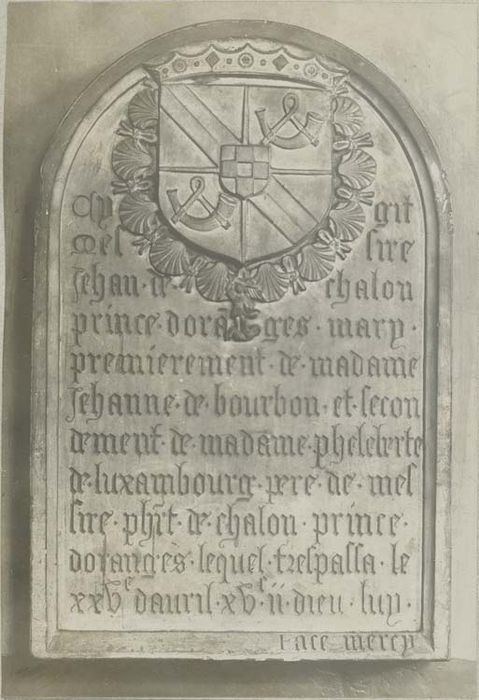 Cy git
Mes sire
Jehan · de chalon
prince · doranges · mary ·
premierement · de · madame
Jehanne · de · bourbon · et · secon
dement · de · madame · pheleberte
de · luxambourg · pere · de · mes
sire · phi͞t · de · chalon · prince ·
doranges · lequel · trespassa · le
xxVe dauril · xVc ii · dieu · luy ·
face mercy